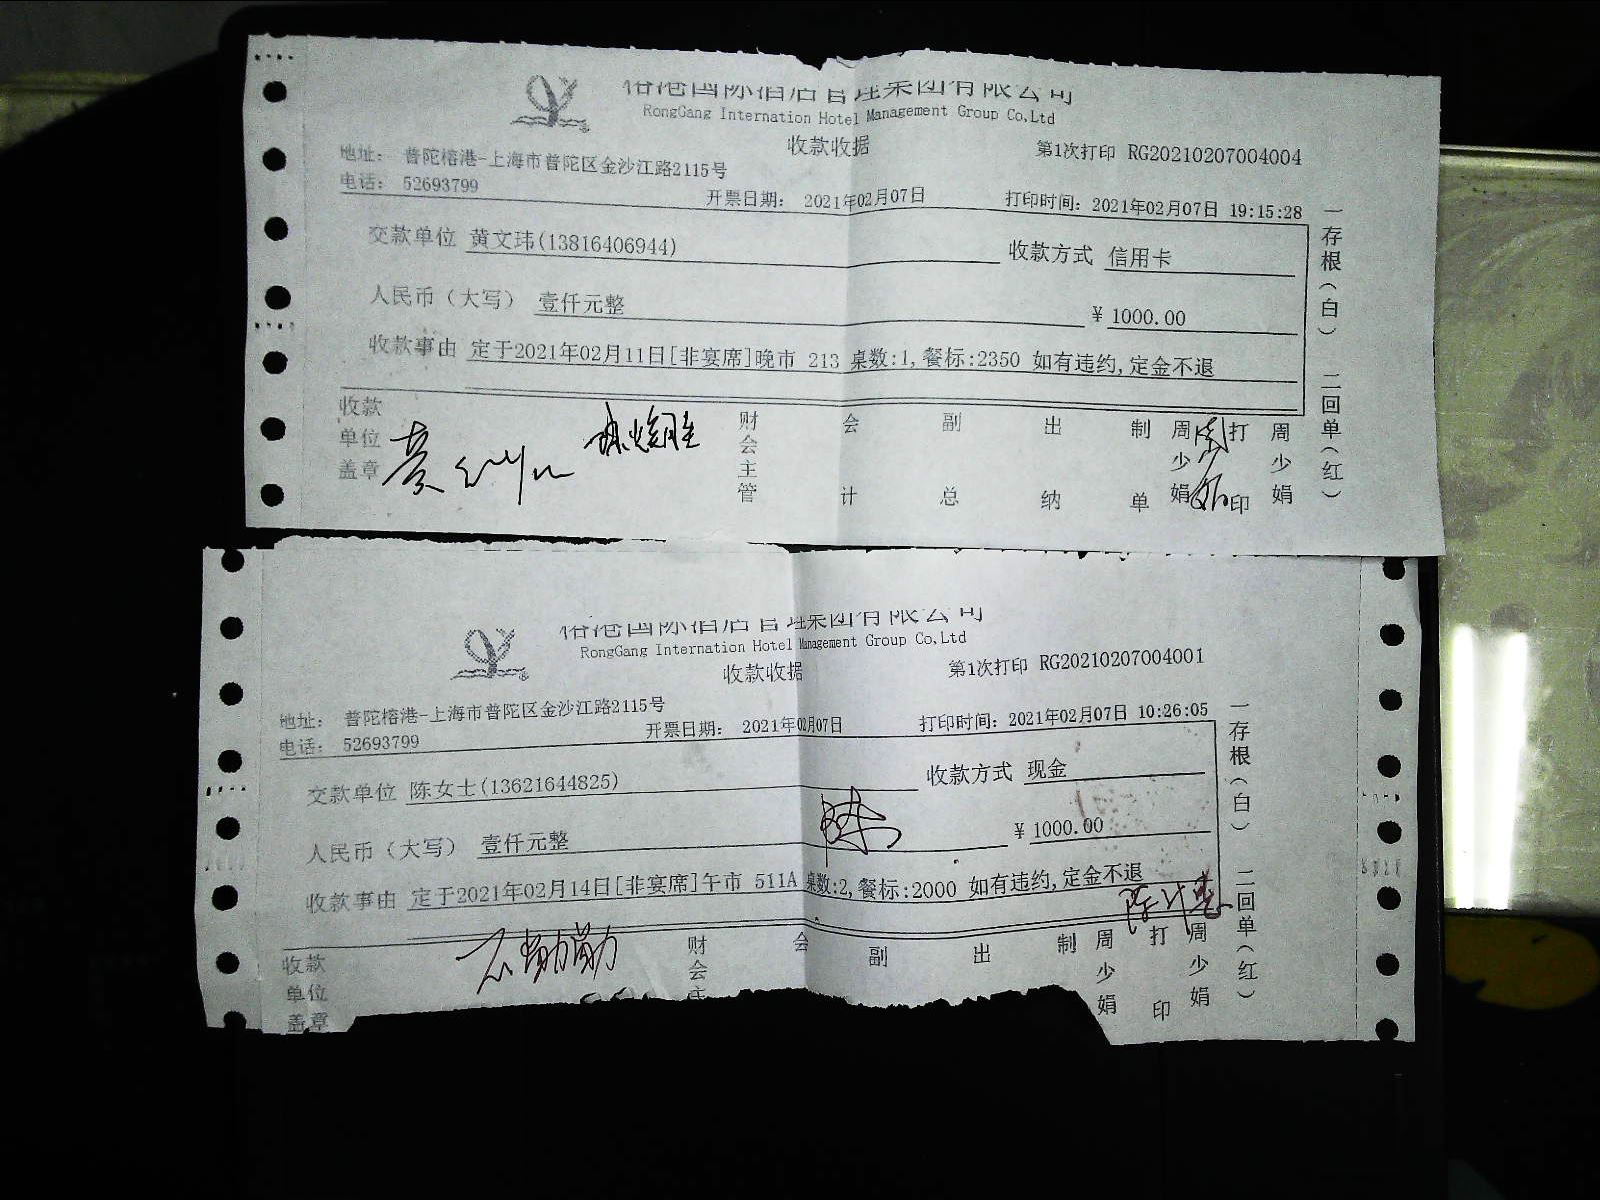 国际酒店管理集团有限公司
RongGang Internation Hotel Management Group Co,Ltd
收款收据
第1次打印 RG20210207004004
地址： 普陀榕港-上海市普陀区金沙江路2115号
电话： 52693799
开票日期： 2021年02月07日
打印时间：2021年02月07日 19:15:28
交款单位 黄文玮(13816406944)
收款方式 信用卡
人民币（大写） 壹仟元整
￥1000.00
收款事由 定于2021年02月11日[非宴席]晚市 213 桌数:1,餐标:2350 如有违约,定金不退
收款单位盖章
财会主管
会计
副总
出纳
制单
周少娟
打印
周少娟
一存根（白） 二回单（红）
国际酒店管理集团有限公司
RongGang Internation Hotel Management Group Co,Ltd
收款收据
第1次打印 RG20210207004001
地址： 普陀榕港-上海市普陀区金沙江路2115号
电话： 52693799
开票日期： 2021年02月07日
打印时间：2021年02月07日 10:26:05
交款单位 陈女士(13621644825)
收款方式 现金
人民币（大写） 壹仟元整
￥1000.00
收款事由 定于2021年02月14日[非宴席]午市 511A 桌数:2,餐标:2000 如有违约,定金不退
收款单位盖章
财会主
会
副
出
制
周少娟
打印
周少娟
一存根（白） 二回单（红）